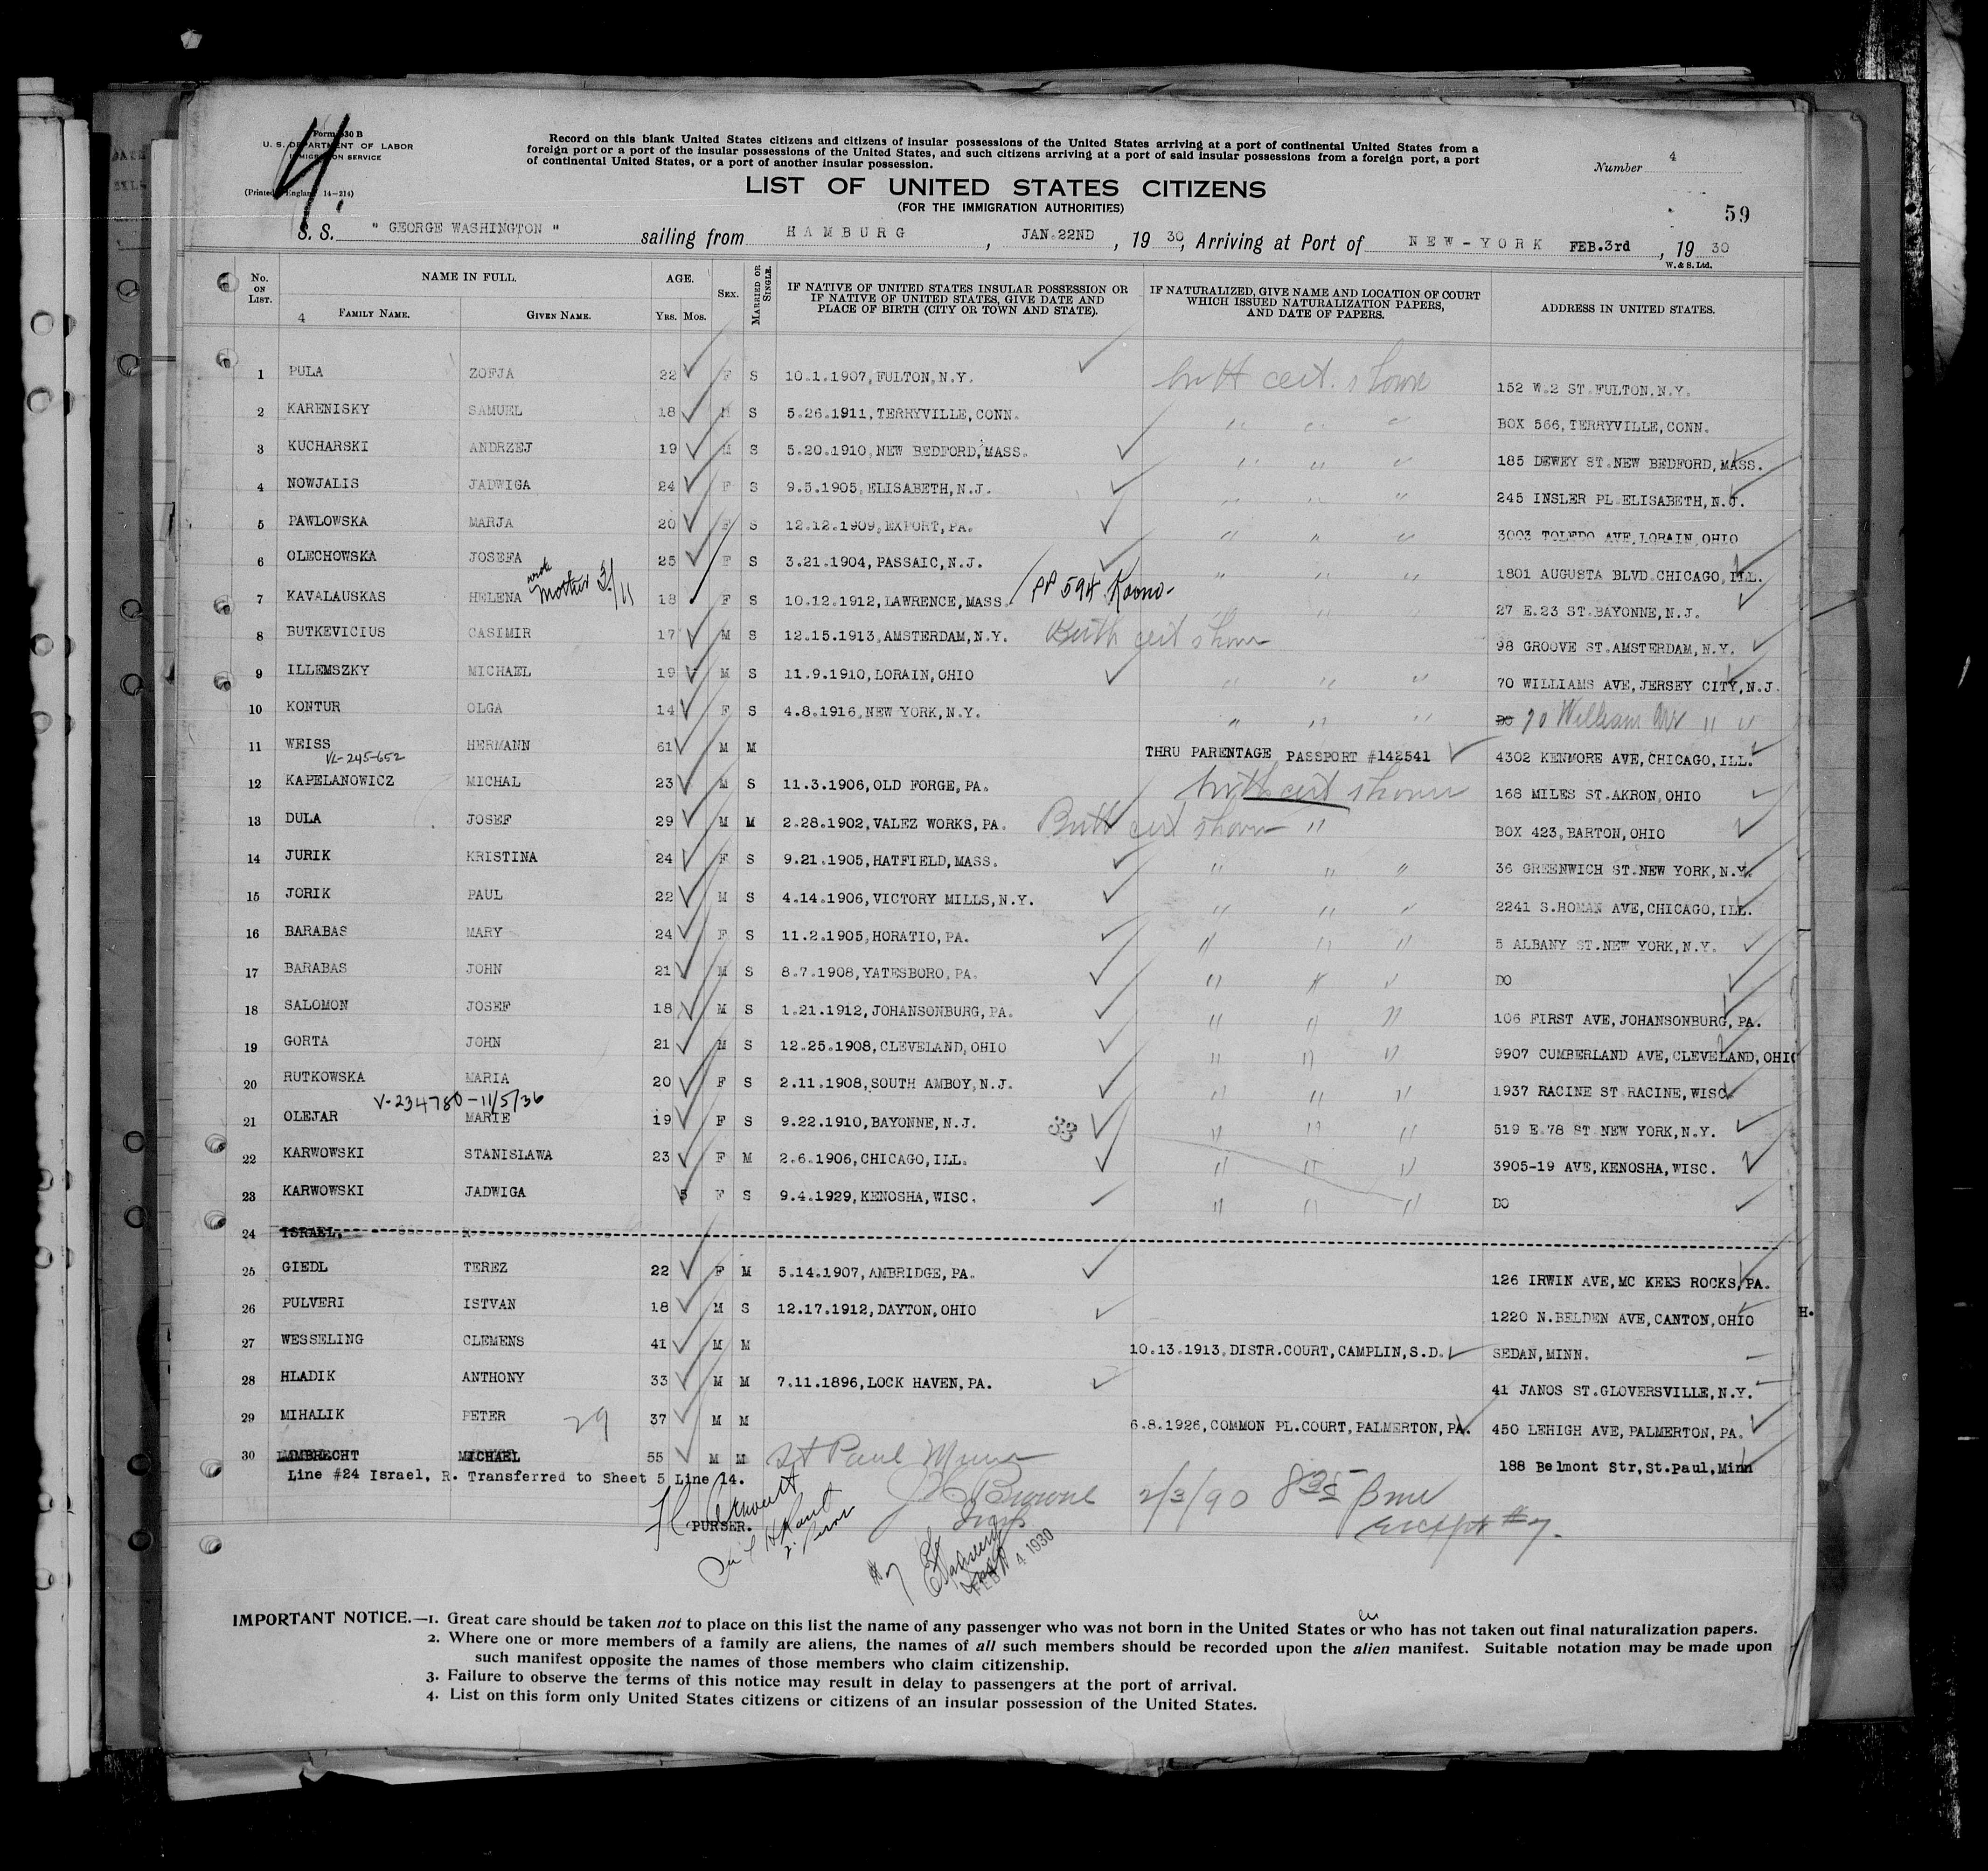 Form 630 B
U. S. DEPARTMENT OF LABOR
IMMIGRATION SERVICE
(Printed in England 14-214)
4.
Record on this blank United States citizens and citizens of insular possessions of the United States arriving at a port of continental United States from a
foreign port or a port of the insular possessions of the United States, and such citizens arriving at a port of said insular possessions from a foreign port, a port
of continental United States, or a port of another insular possession.
Number 4
LIST OF UNITED STATES CITIZENS
(FOR THE IMMIGRATION AUTHORITIES)
59
S. S. " GEORGE WASHINGTON " sailing from HAMBURG, JAN.22ND, 19 30, Arriving at Port of NEW-YORK FEB.3rd, 19 30
W. & S. Ltd.
No. ON LIST. NAME IN FULL. AGE. SEX. MARRIED OR SINGLE. IF NATIVE OF UNITED STATES INSULAR POSSESSION OR IF NATIVE OF UNITED STATES, GIVE DATE AND PLACE OF BIRTH (CITY OR TOWN AND STATE). IF NATURALIZED, GIVE NAME AND LOCATION OF COURT WHICH ISSUED NATURALIZATION PAPERS, AND DATE OF PAPERS. ADDRESS IN UNITED STATES.
4 FAMILY NAME. GIVEN NAME. YRS. MOS.
1 PULA ZOFJA 22 F S 10.1.1907,FULTON,N.Y. birth cert. shown 152 W.2 ST.FULTON,N.Y.
2 KARENISKY SAMUEL 18 M S 5.26.1911,TERRYVILLE,CONN. " " " BOX 566,TERRYVILLE,CONN.
3 KUCHARSKI ANDRZEJ 19 M S 5.20.1910,NEW BEDFORD,MASS. " " " 185 DEWEY ST.NEW BEDFORD,MASS.
4 NOWJALIS JADWIGA 24 F S 9.5.1905,ELISABETH,N.J. " " " 245 INSLER PL ELISABETH,N.J.
5 PAWLOWSKA MARJA 20 F S 12.12.1909,EXPORT,PA. " " " 3003 TOLEDO AVE,LORAIN,OHIO
6 OLECHOWSKA JOSEFA 25 F S 3.21.1904,PASSAIC,N.J. " " " 1801 AUGUSTA BLVD.CHICAGO,ILL.
7 KAVALAUSKAS HELENA Mother 18 F S 10.12.1912,LAWRENCE,MASS. PP 594 Kovno- " " " 27 E.23 ST.BAYONNE,N.J.
8 BUTKEVICIUS CASIMIR 17 M S 12.15.1913,AMSTERDAM,N.Y. Birth cert shown 98 GROOVE ST.AMSTERDAM,N.Y.
9 ILLEMSZKY MICHAEL 19 M S 11.9.1910,LORAIN,OHIO " " " 70 WILLIAMS AVE,JERSEY CITY,N.J.
10 KONTUR OLGA 14 F S 4.8.1916,NEW YORK,N.Y. " " " DO 70 William Ave " "
11 WEISS HERMANN 61 M M THRU PARENTAGE PASSPORT #142541 4302 KENMORE AVE,CHICAGO,ILL.
VL-245-652
12 KAPELANOWICZ MICHAL 23 M S 11.3.1906,OLD FORGE,PA. birth cert shown 168 MILES ST.AKRON,OHIO
13 DULA JOSEF 29 M M 2.28.1902,VALEZ WORKS,PA. Birth cert shown " BOX 423,BARTON,OHIO
14 JURIK KRISTINA 24 F S 9.21.1905,HATFIELD,MASS. " " " 36 GREENWICH ST.NEW YORK,N.Y.
15 JORIK PAUL 22 M S 4.14.1906,VICTORY MILLS,N.Y. " " " 2241 S.HOMAN AVE,CHICAGO,ILL.
16 BARABAS MARY 24 F S 11.2.1905,HORATIO,PA. " " " 5 ALBANY ST.NEW YORK,N.Y.
17 BARABAS JOHN 21 M S 8.7.1908,YATESBORO,PA. " " " DO
18 SALOMON JOSEF 18 M S 1.21.1912,JOHANSONBURG,PA. " " " 106 FIRST AVE,JOHANSONBURG,PA.
19 GORTA JOHN 21 M S 12.25.1908,CLEVELAND,OHIO " " " 9907 CUMBERLAND AVE,CLEVELAND,OHIO
20 RUTKOWSKA MARIA 20 F S 2.11.1908,SOUTH AMBOY,N.J. " " " 1937 RACINE ST RACINE,WISC.
V-234780-11/5/36
21 OLEJAR MARIE 19 F S 9.22.1910,BAYONNE,N.J. 33 " " " 519 E.78 ST NEW YORK,N.Y.
22 KARWOWSKI STANISLAWA 23 F M 2.6.1906,CHICAGO,ILL. " " " 3905-19 AVE,KENOSHA,WISC.
23 KARWOWSKI JADWIGA 5 F S 9.4.1929,KENOSHA,WISC. " " " DO
24 ISRAEL. R
25 GIEDL TEREZ 22 F M 5.14.1907,AMBRIDGE,PA. 126 IRWIN AVE,MC KEES ROCKS,PA.
26 PULVERI ISTVAN 18 M S 12.17.1912,DAYTON,OHIO 1220 N.BELDEN AVE,CANTON,OHIO H.
27 WESSELING CLEMENS 41 M M 10.13.1913,DISTR.COURT,CAMPLIN,S.D. SEDAN,MINN.
28 HLADIK ANTHONY 33 M M 7.11.1896,LOCK HAVEN,PA. 41 JANOS ST.GLOVERSVILLE,N.Y.
29 MIHALIK PETER 29 37 M M 6.8.1926,COMMON PL.COURT,PALMERTON,PA. 450 LEHIGH AVE,PALMERTON,PA.
30 LAMBRECHT MICHAEL 55 M M St Paul Minn 188 Belmont Str,St.Paul,Minn
Line #24 Israel, R. Transferred to Sheet 5 Line 14.
2/3/90
PURSER.
except #7.
#7
FEB 4 1930
IMPORTANT NOTICE.—1. Great care should be taken not to place on this list the name of any passenger who was not born in the United States or who has not taken out final naturalization papers.
2. Where one or more members of a family are aliens, the names of all such members should be recorded upon the alien manifest. Suitable notation may be made upon
such manifest opposite the names of those members who claim citizenship.
3. Failure to observe the terms of this notice may result in delay to passengers at the port of arrival.
4. List on this form only United States citizens or citizens of an insular possession of the United States.